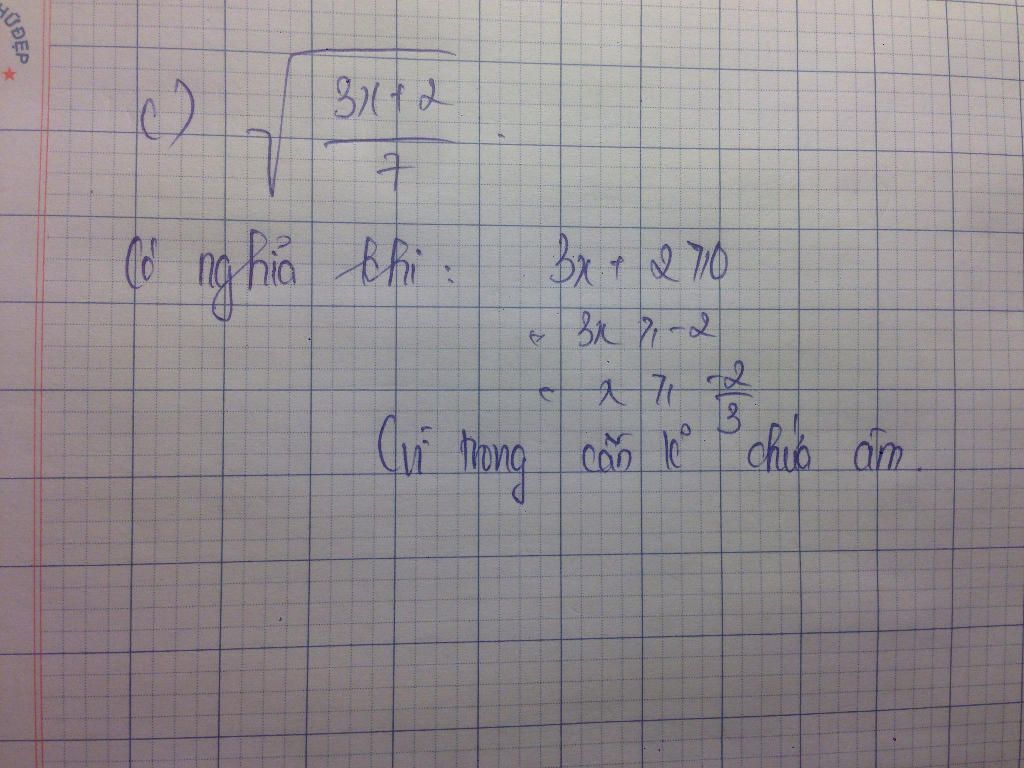 HỮ ĐẸP
c) √((3x+2)/7) .
Có nghĩa khi: 3x + 2 ≥ 0
= 3x ≥ -2
= x ≥ -2/3
(vì trong căn k° chứa âm.